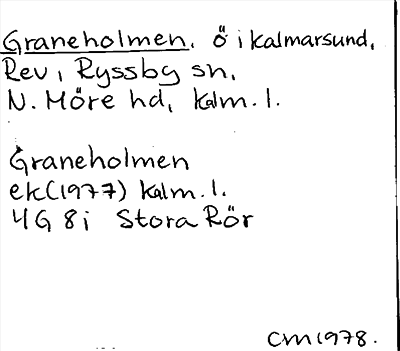 Graneholmen. Ö i Kalmarsund,
Rev, Ryssby sn,
N. Möre hd, Kalm. l.
Graneholmen
ek(1977) Kalm. l.
4G 8i Stora Rör
CM 1978.